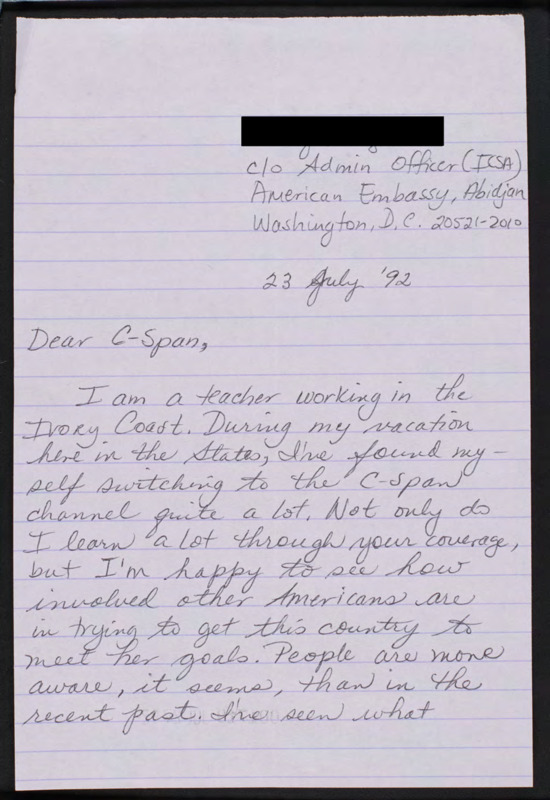 c/o Admin Officer (ICSA)
American Embassy, Abidjan
Washington, D.C. 20521-2010
23 July '92
Dear C-Span,
I am a teacher working in the
Ivory Coast. During my vacation
here in the States, I've found my-
self switching to the C-Span
channel quite a lot. Not only do
I learn a lot through your coverage,
but I'm happy to see how
involved other Americans are
in trying to get this country to
meet her goals. People are more
aware, it seems, than in the
recent past. I've seen what